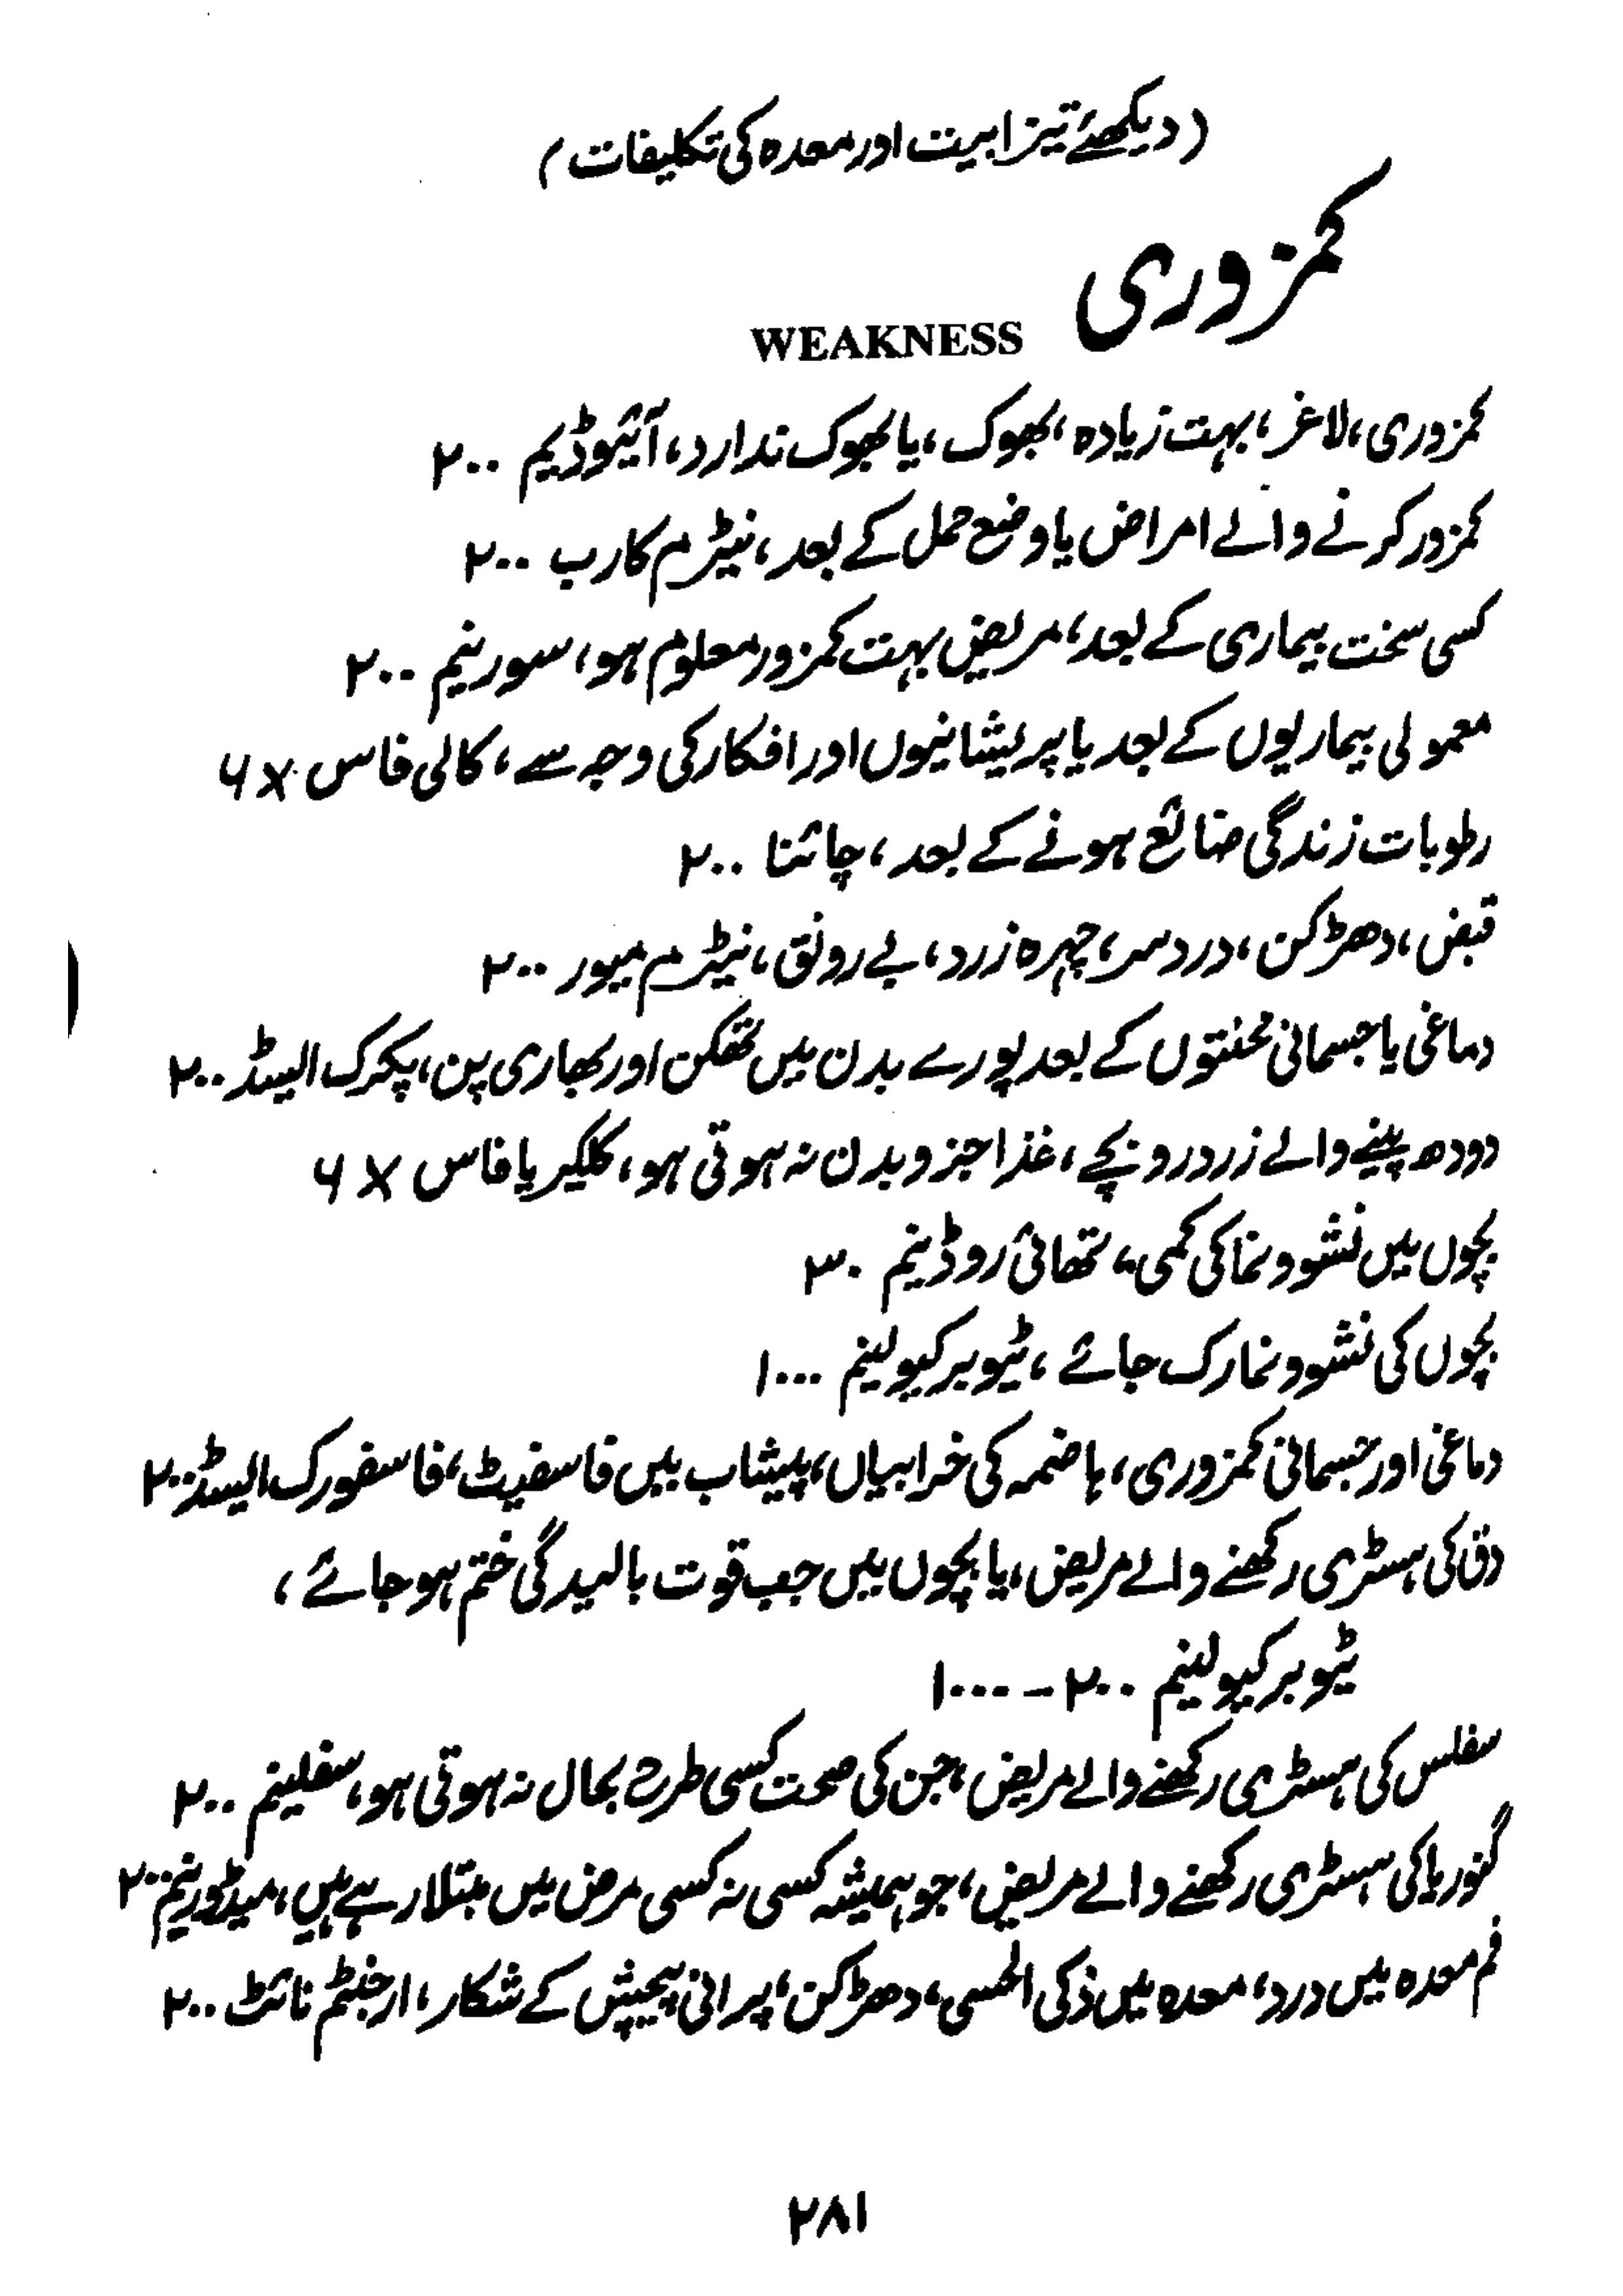 (دیکھئے تیزابیت اور معدہ کی تکلیفات)
کمزوری
WEAKNESS
کمزوری، لاغر، بہت زیادہ، بھوک، یا بھوک ندارد، آئیوڈیم ۲۰۰
کمزور کرنے والے امراض یا وضع حمل کے بعد، نیٹرم کارب ۲۰۰
کسی سخت بیماری کے بعد، مریض بہت کمزور معلوم ہو، سورنیم ۲۰۰
معمولی بیماریوں کے بعد یا پریشانیوں اور افکار کی وجہ سے، کالی فاس ۶x
رطوبات زندگی ضائع ہونے کے بعد، چائنا ۲۰۰
قبض، دھڑکن، درد سر، چہرہ زرد، بے رونق، نیٹرم میور ۲۰۰
دماغی یا جسمانی محنتوں کے بعد پورے بدن میں تھکن اور بھاری پن، پکرک ایسڈ ۲۰۰
دودھ پینے والے زرد رو بچے، غذا جزو بدن نہ ہوتی ہو، کلکیریا فاس ۶x
بچوں میں نشوونما کی کمی، تھائی روڈینم ۳۰
بچوں کی نشوونما رک جائے، ٹیوبرکیولینم ۱۰۰۰
دماغی اور جسمانی کمزوری، ہاضمہ کی خرابیاں، پیشاب میں فاسفیٹ، فاسفورک ایسڈ ۲۰۰
دق کی ہسٹری رکھنے والے مریض، یا بچوں میں جب قوت بالیدگی ختم ہو جائے،
ٹیوبرکیولینم ۲۰۰ - ۱۰۰۰
سفلس کی ہسٹری رکھنے والے مریض، جن کی صحت کسی طرح بحال نہ ہوتی ہو، سفلینم ۲۰۰
گنوریا کی ہسٹری رکھنے والے مریض، جو ہمیشہ کسی نہ کسی مرض میں مبتلا رہے ہیں، میڈورینم ۲۰۰
فم معدہ میں درد، معدہ میں ذکی الحسی، دھڑکن، پرانی پیچش کے شکار، ارجنٹم نائٹ ۲۰۰
۲۸۱